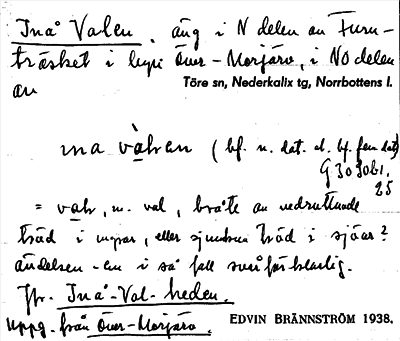 Inå Valen, äng i N delen av Furu-
träsket i byn Över-Morjärv, i NO delen
av
Töre sn, Nederkalix tg, Norrbottens l.
ına vàlæn (bf. n. dat. el. bf. fem dat)
G 30 30 b1.
25
= val, n. val, bråte av nedruttnade
träd i myrar, eller sjunkna träd i sjöar?
ändelsen -en i så fall svårförklarlig.
Jfr. Inå-Val-heden.
Uppg. från Över-Morjärv. EDVIN BRÄNNSTRÖM 1938.